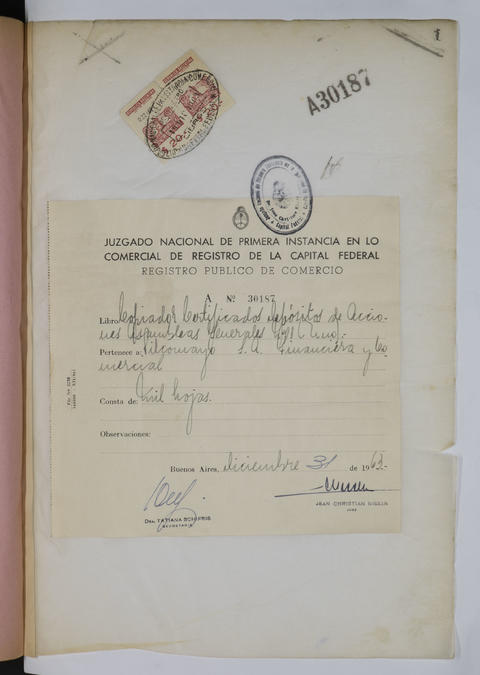 1
A30187
JUZGADO NACIONAL DE PRIMERA INSTANCIA EN LO
COMERCIAL DE REGISTRO DE LA CAPITAL FEDERAL
REGISTRO PUBLICO DE COMERCIO
A Nº 30187
Libro: Copiador Certificados Depósitos de Accio-
nes Asambleas Generales Nº Uno.-
Pertenece a: Pilcomayo S.A. Financiera y Co
mercial
Consta de: Mil hojas.
Observaciones:
Buenos Aires, diciembre 31 de 1963.-
Dra. TATIANA SCHIFRIS
SECRETARIA
JEAN CHRISTIAN NISSEN
JUEZ